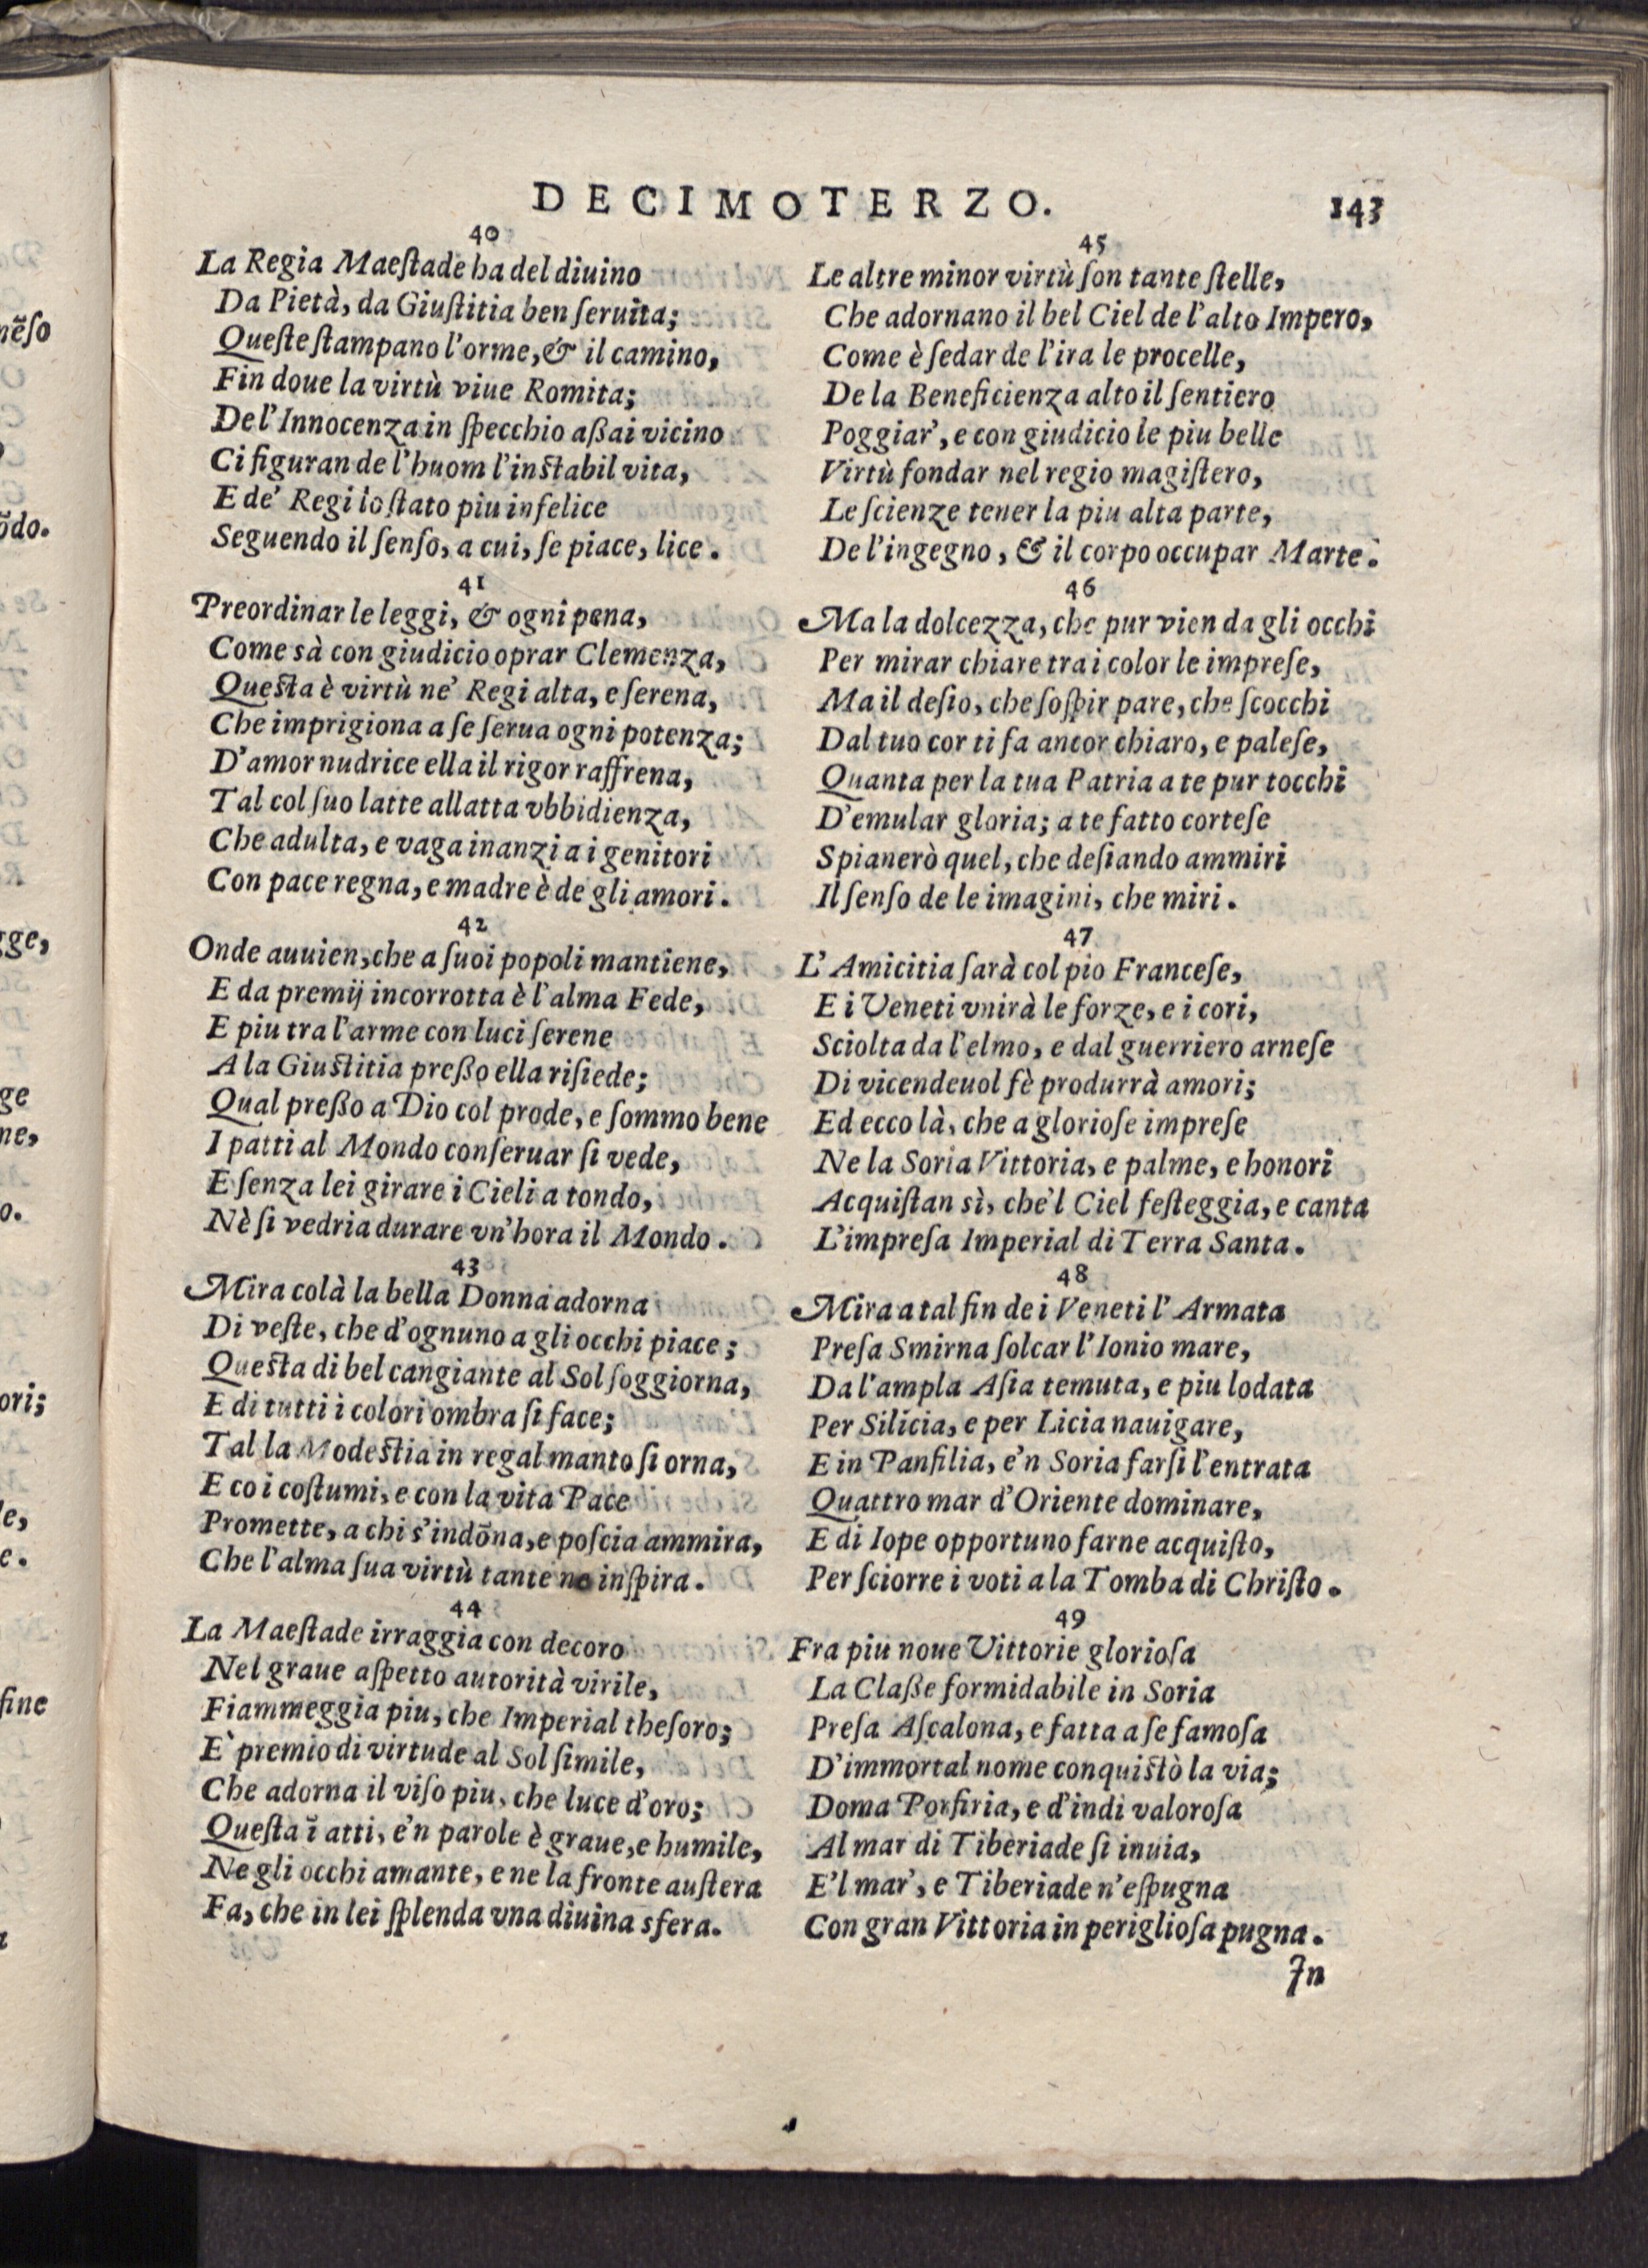 DECIMOTERZO. 143
40
La Regia Maeſtade ha del diuino
Da Pietà, da Giuſtitia ben ſeruita;
Queſte ſtampano l'orme, & il camino,
Fin doue la virtù viue Romita;
De l'Innocenza in ſpecchio aßai vicino
Ci figuran de l'huom l'inſtabil vita,
E de' Regi lo ſtato piu infelice
Seguendo il ſenſo, a cui, ſe piace, lice.
41
Preordinar le leggi, & ogni pena,
Come sà con giudicio oprar Clemenza,
Queſta è virtù ne' Regi alta, e ſerena,
Che imprigiona a ſe ſerua ogni potenza;
D'amor nudrice ella il rigor raffrena,
Tal col ſuo latte allatta vbbidienza,
Che adulta, e vaga inanzi a i genitori
Con pace regna, e madre è de gli amori.
42
Onde auuien, che a ſuoi popoli mantiene,
E da premij incorrotta è l'alma Fede,
E piu tra l'arme con luci ſerene
A la Giuſtitia preßo ella riſiede;
Qual preßo a Dio col prode, e ſommo bene
I patti al Mondo conſeruar ſi vede,
E ſenza lei girare i Cieli a tondo,
Nè ſi vedria durare vn'hora il Mondo.
43
Mira colà la bella Donna adorna
Di veſte, che d'ognuno a gli occhi piace;
Queſta di bel cangiante al Sol ſoggiorna,
E di tutti i colori ombra ſi face;
Tal la Modeſtia in regal manto ſi orna,
E co i coſtumi, e con la vita Pace
Promette, a chi s'indōna, e poſcia ammira,
Che l'alma ſua virtù tante ne inſpira.
44
La Maeſtade irraggia con decoro
Nel graue aſpetto autorità virile,
Fiammeggia piu, che Imperial theſoro;
E` premio di virtude al Sol ſimile,
Che adorna il viſo piu, che luce d'oro;
Queſta ī atti, e'n parole è graue, e humile,
Ne gli occhi amante, e ne la fronte auſtera
Fa, che in lei ſplenda vna diuina sfera.
45
Le altre minor virtù ſon tante ſtelle,
Che adornano il bel Ciel de l'alto Impero,
Come è ſedar de l'ira le procelle,
De la Beneficienza alto il ſentiero
Poggiar', e con giudicio le piu belle
Virtù fondar nel regio magiſtero,
Le ſcienze tener la piu alta parte,
De l'ingegno, & il corpo occupar Marte.
46
Ma la dolcezza, che pur vien da gli occhi
Per mirar chiare tra i color le impreſe,
Ma il deſio, che ſoſpir pare, che ſcocchi
Dal tuo cor ti fa ancor chiaro, e paleſe,
Quanta per la tua Patria a te pur tocchi
D'emular gloria; a te fatto corteſe
Spianerò quel, che deſiando ammiri
Il ſenſo de le imagini, che miri.
47
L'Amicitia ſarà col pio Franceſe,
E i Veneti vnirà le forze, e i cori,
Sciolta da l'elmo, e dal guerriero arneſe
Di vicendeuol fè produrrà amori;
Ed ecco là, che a glorioſe impreſe
Ne la Soria Vittoria, e palme, e honori
Acquiſtan sì, che'l Ciel feſteggia, e canta
L'impreſa Imperial di Terra Santa.
48
Mira a tal fin de i Veneti l'Armata
Preſa Smirna ſolcar l'Ionio mare,
Da l'ampla Aſia temuta, e piu lodata
Per Silicia, e per Licia nauigare,
E in Panfilia, e'n Soria farſi l'entrata
Quattro mar d'Oriente dominare,
E di Iope opportuno farne acquiſto,
Per ſciorre i voti a la Tomba di Chriſto.
49
Fra piu noue Vittorie glorioſa
La Claße formidabile in Soria
Preſa Aſcalona, e fatta a ſe famoſa
D'immortal nome conquiſtò la via;
Doma Porfiria, e d'indi valoroſa
Al mar di Tiberiade ſi inuia,
E'l mar', e Tiberiade n'eſpugna
Con gran Vittoria in periglioſa pugna.
In